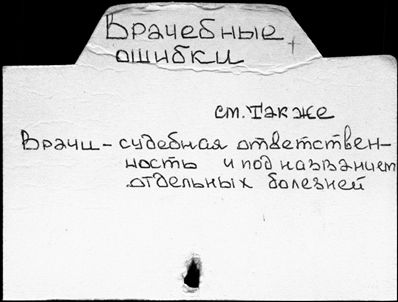 Врачебные
ошибки
см. Также
Врачи - судебная ответствен-
ность и под названием
отдельных болезней